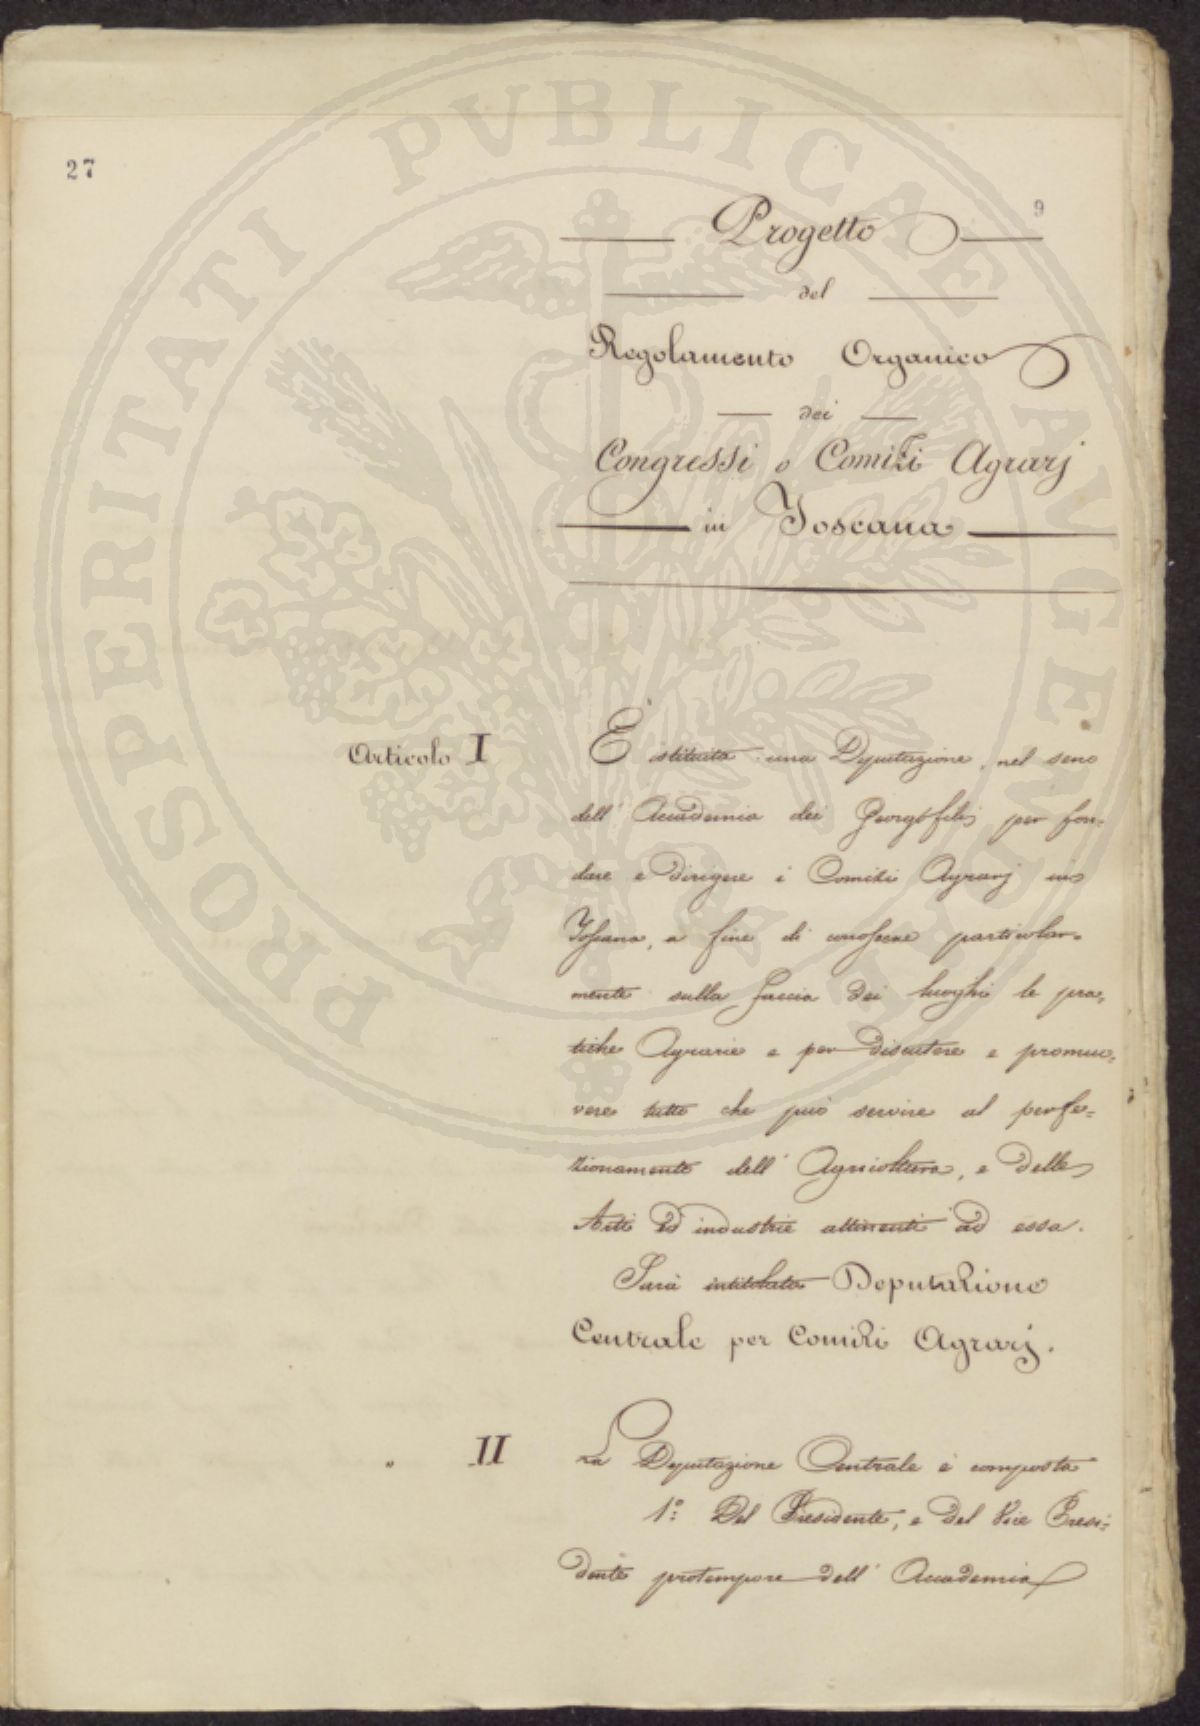 27
9
Progetto
del
Regolamento Organico
dei
Congressi o Comizi Agrarj
in Toscana
Articolo I
È istituita una Deputazione, nel seno
dell' Accademia dei Georgofili per fon=
dare e dirigere i Comizi Agrarj in
Toscana, a fine di conoscere particolar=
mente sulla faccia dei luoghi le pra=
tiche Agrarie e per discutere e promuo=
vere tutto che può servire al perfe=
zionamento dell' Agricoltura, e delle
Arti ed industrie attinenti ad essa.
Sarà intitolata Deputazione
Centrale per Comizi Agrarj.
" II
La Deputazione Centrale è composta
1º: Del Presidente, e del Vice Presi=
dente protempore dell' Accademia
PROSPERITATI PVBLICAE AVGENDAE